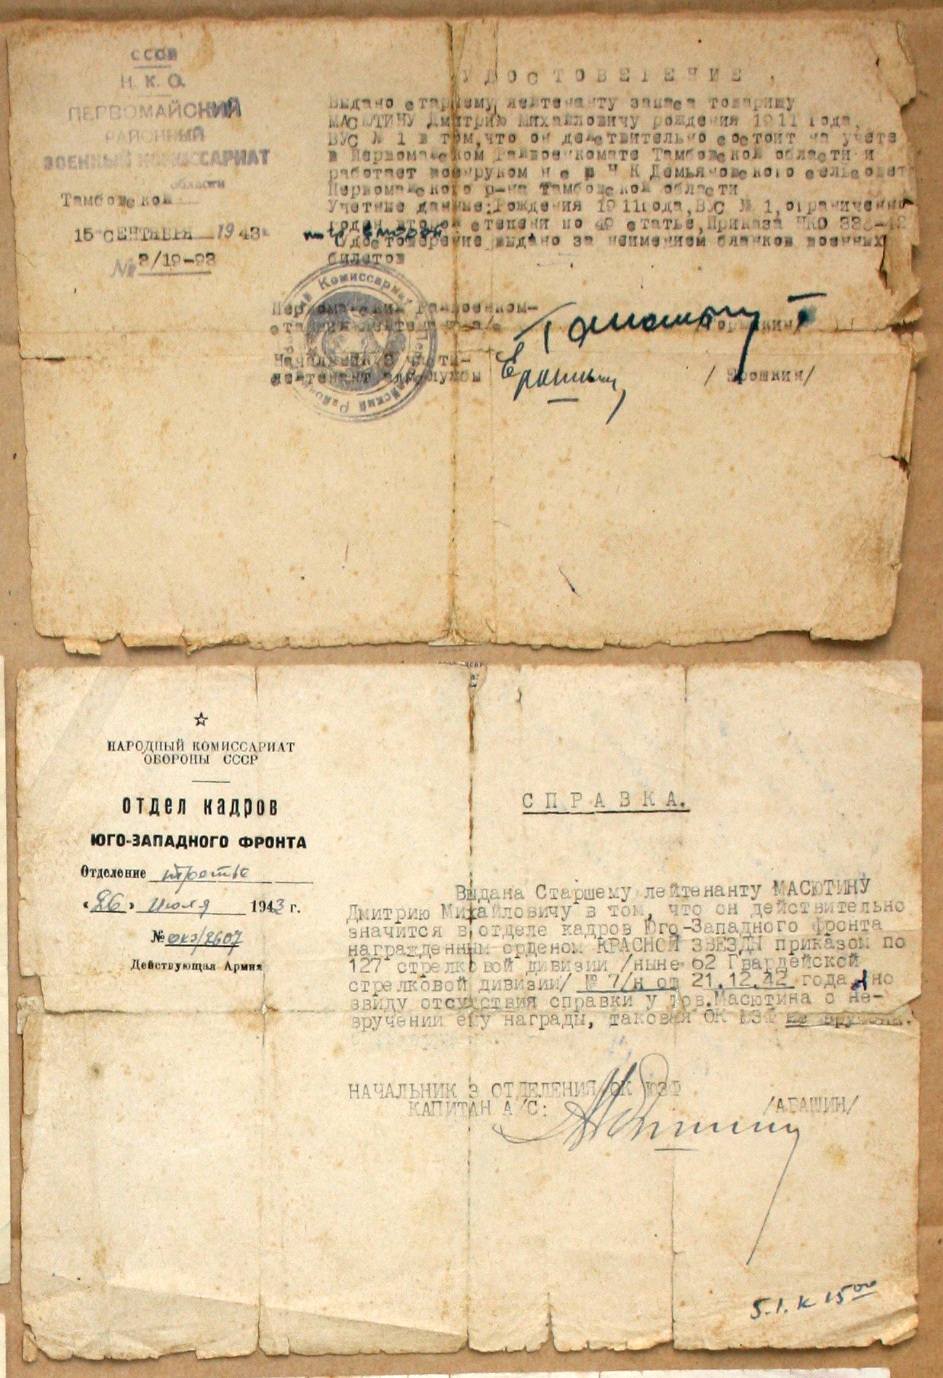 СССР
Н. К. О.
ПЕРВОМАЙСКИЙ
РАЙОННЫЙ
ВОЕННЫЙ КОМИССАРИАТ
Тамбовской области
15 СЕНТЯБРЯ 1943
№ 3/19-93
УДОСТОВЕРЕНИЕ
Выдано старшему лейтенанту запаса товарищу
МАСЮТИНУ Дмитрию Михайловичу рождения 1911 года,
ВУС № 1 в том, что он действительно состоит на учете
в Первомайском Райвоенкомате Тамбовской области и
работает военруком Демьяновского сельсовета
Первомайского р-на Тамбовской области
Учетные данные: Рождения 1911 года, ВУС № 1, ограниченно
степени по 49 статье, Приказа НКО 336-42
Удостоверение выдано за неимением бланков военных
билетов
Первомайский Райвоенком-
старший лейтенант
Начальник 3 части-
лейтенант /Ерошкин/
☆
НАРОДНЫЙ КОМИССАРИАТ
ОБОРОНЫ СССР
ОТДЕЛ КАДРОВ
ЮГО-ЗАПАДНОГО ФРОНТА
Отделение третье
«26» Июля 1943 г.
№ окз/2607
Действующая Армия
СПРАВКА.
Выдана Старшему лейтенанту МАСЮТИНУ
Дмитрию Михайловичу в том, что он действительно
значится в отделе кадров Юго-Западного Фронта
награжденным орденом КРАСНОЙ ЗВЕЗДЫ приказом по
127 стрелковой дивизии /ныне 62 Гвардейской
стрелковой дивизии/ № 7/н от 21.12.42 года, но
ввиду отсутствия справки у тов. Масютина о не-
вручении ему награды, таковая ОК ЮЗФ не вручена.
НАЧАЛЬНИК 3 ОТДЕЛЕНИЯ ОК ЮЗФ
КАПИТАН А/С: /АБАШИН/
5.1. к 15⁰⁰